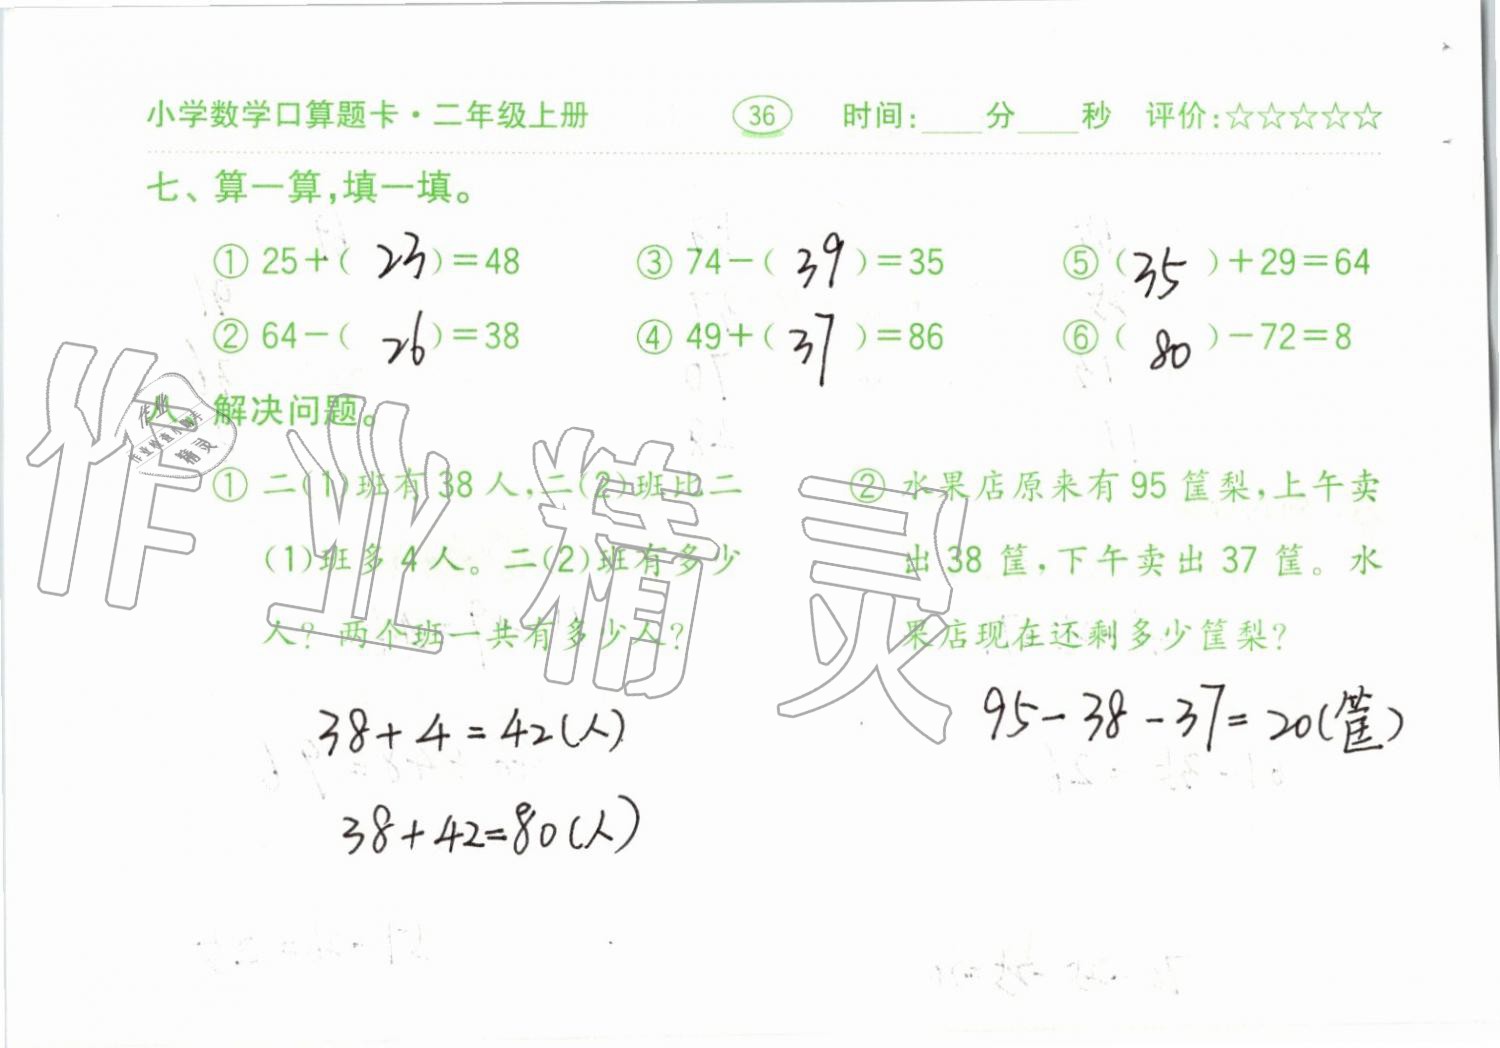 小学数学口算题卡·二年级上册 36 时间:____分____秒 评价:☆☆☆☆☆
七、算一算,填一填。
① 25+( 23 )=48 ③ 74-( 39 )=35 ⑤ ( 35 )+29=64
② 64-( 26 )=38 ④ 49+( 37 )=86 ⑥ ( 80 )-72=8
八、解决问题。
① 二(1)班有38人,二(2)班比二
(1)班多4人。二(2)班有多少
人?两个班一共有多少人?
38+4=42(人)
38+42=80(人)
② 水果店原来有95筐梨,上午卖
出38筐,下午卖出37筐。水
果店现在还剩多少筐梨?
95-38-37=20(筐)
作业精灵